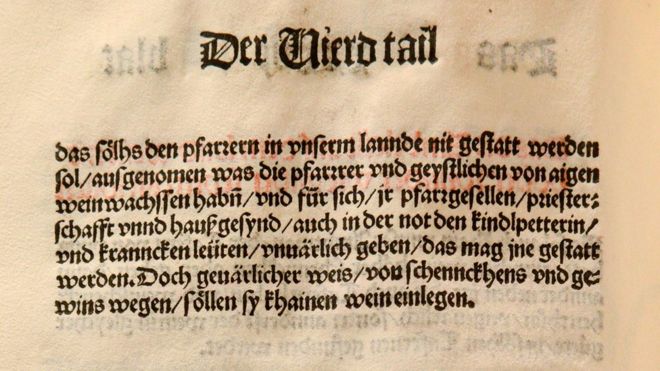 Der Vierd tail
das sölhs den pfarrern in vnserm lannde nit gestatt werden
sol/ausgenomen was die pfarrer vnd geystlichen von aigen
weinwachssen habñ/vnd für sich/jr pfarrgesellen/priester-
schafft vnnd haußgesynd/auch in der not den kindlpetterin/
vnd kranncken leüten/vnuärlich geben/das mag jne gestatt
werden. Doch geuärlicher weis/von schennckhens vnd ge-
wins wegen/söllen sy khainen wein einlegen.